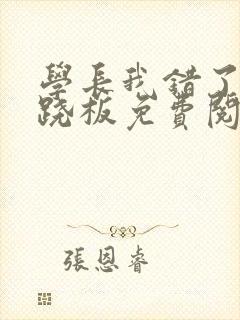 學長我錯了
跷板免費閱
張恩睿